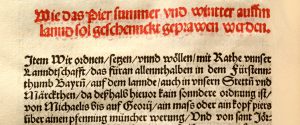 Wie das Pier summer vnd wintter auffm
lannd sol geschennckt geprawen werden.
Item Wir ordnen/ setzen/ vnnd wöllen/ mit Rathe vnnser
Lanndtschafft/ das füran allennthalben in dem Fürstenn-
thumb Bayrn/ auf dem lannde/ auch in vnsern Stettn vnd
Märckthen/ da deßhalb hieuor kain sonndere ordnung ist/
von Michaelis biß auf Georij/ ain maß oder ain kopf piers
über ainen pfenning müncher werung/ Vnd von sant Jör-